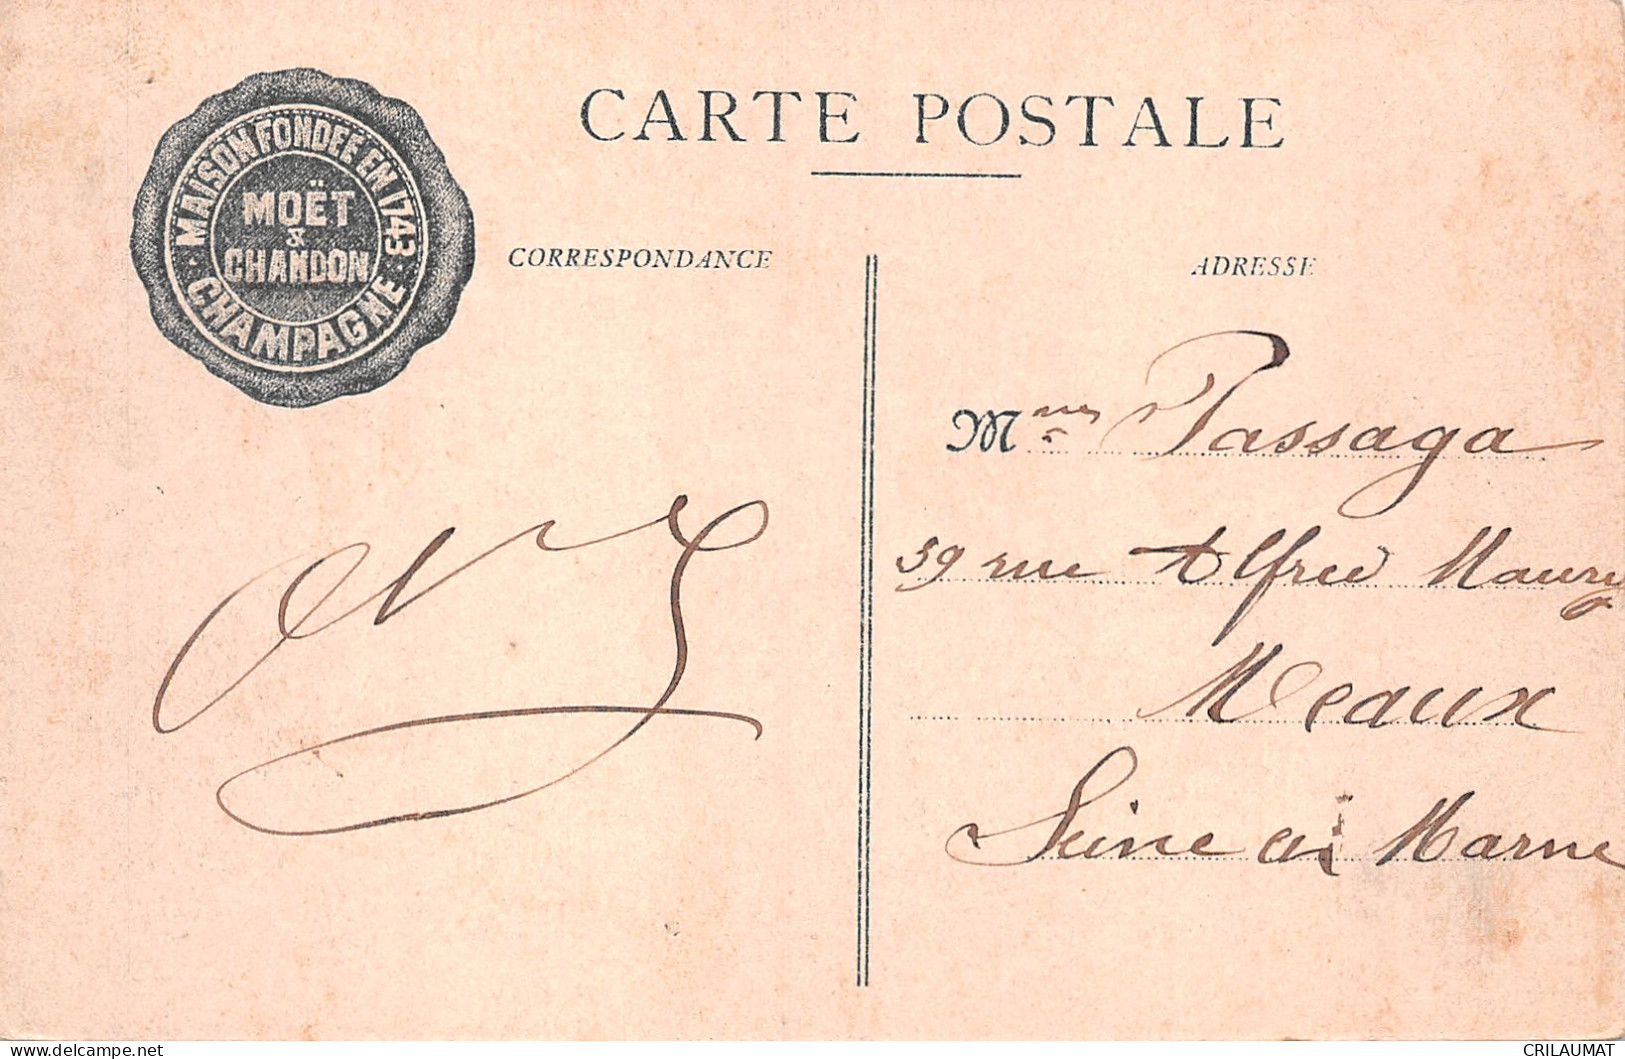 CARTE POSTALE
MAISON FONDÉE EN 1743
MOËT
&
CHANDON
CHAMPAGNE
CORRESPONDANCE
ADRESSE
Mme Passaga
59 rue Alfred Maury
Meaux
Seine et Marne
CRILAUMAT